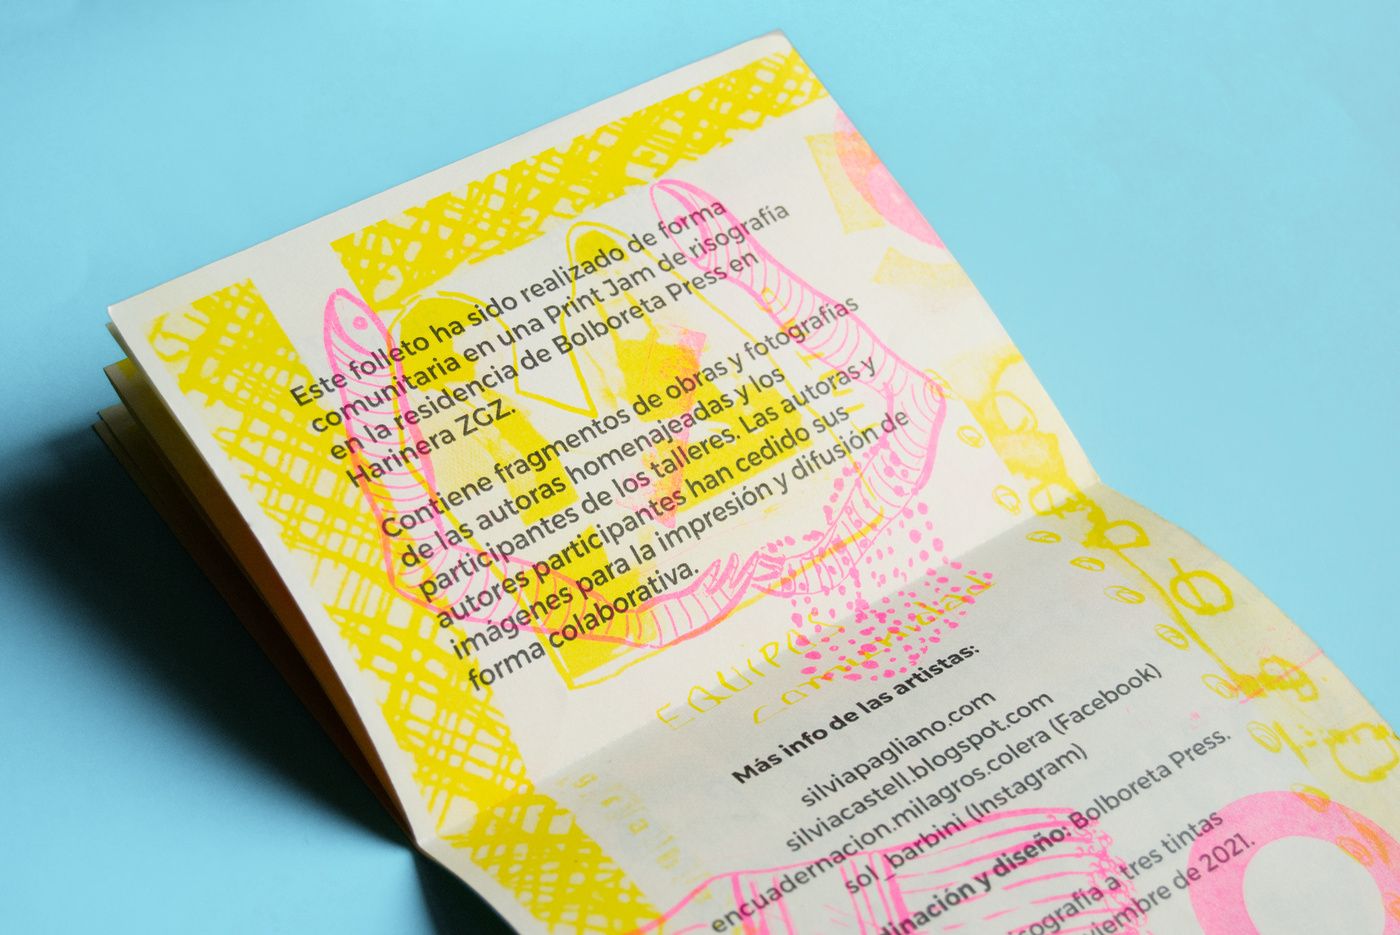 Este folleto ha sido realizado de forma
comunitaria en una Print Jam de risografía
en la residencia de Bolboreta Press en
Harinera ZGZ.
Contiene fragmentos de obras y fotografías
de las autoras homenajeadas y los
participantes de los talleres. Las autoras y
autores participantes han cedido sus
imágenes para la impresión y difusión de
forma colaborativa.
EQUIPOS
Comunidad
Más info de las artistas:
silviapagliano.com
silviacastell.blogspot.com
encuadernacion.milagros.colera (Facebook)
sol_barbini (Instagram)
dinación y diseño: Bolboreta Press.
isografía a tres tintas
viembre de 2021.